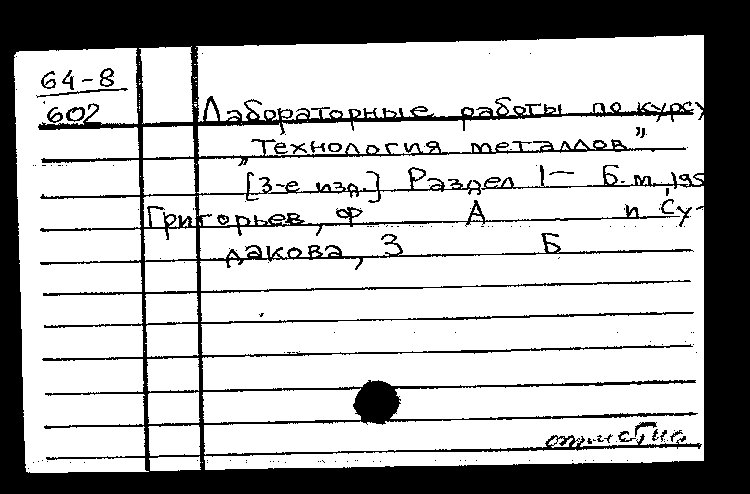 64-8
602
Лабораторные работы по курсу
„Технология металлов".
[3-е изд.] Раздел I— Б.м., 195
Григорьев, Ф А и Су-
дакова, З Б